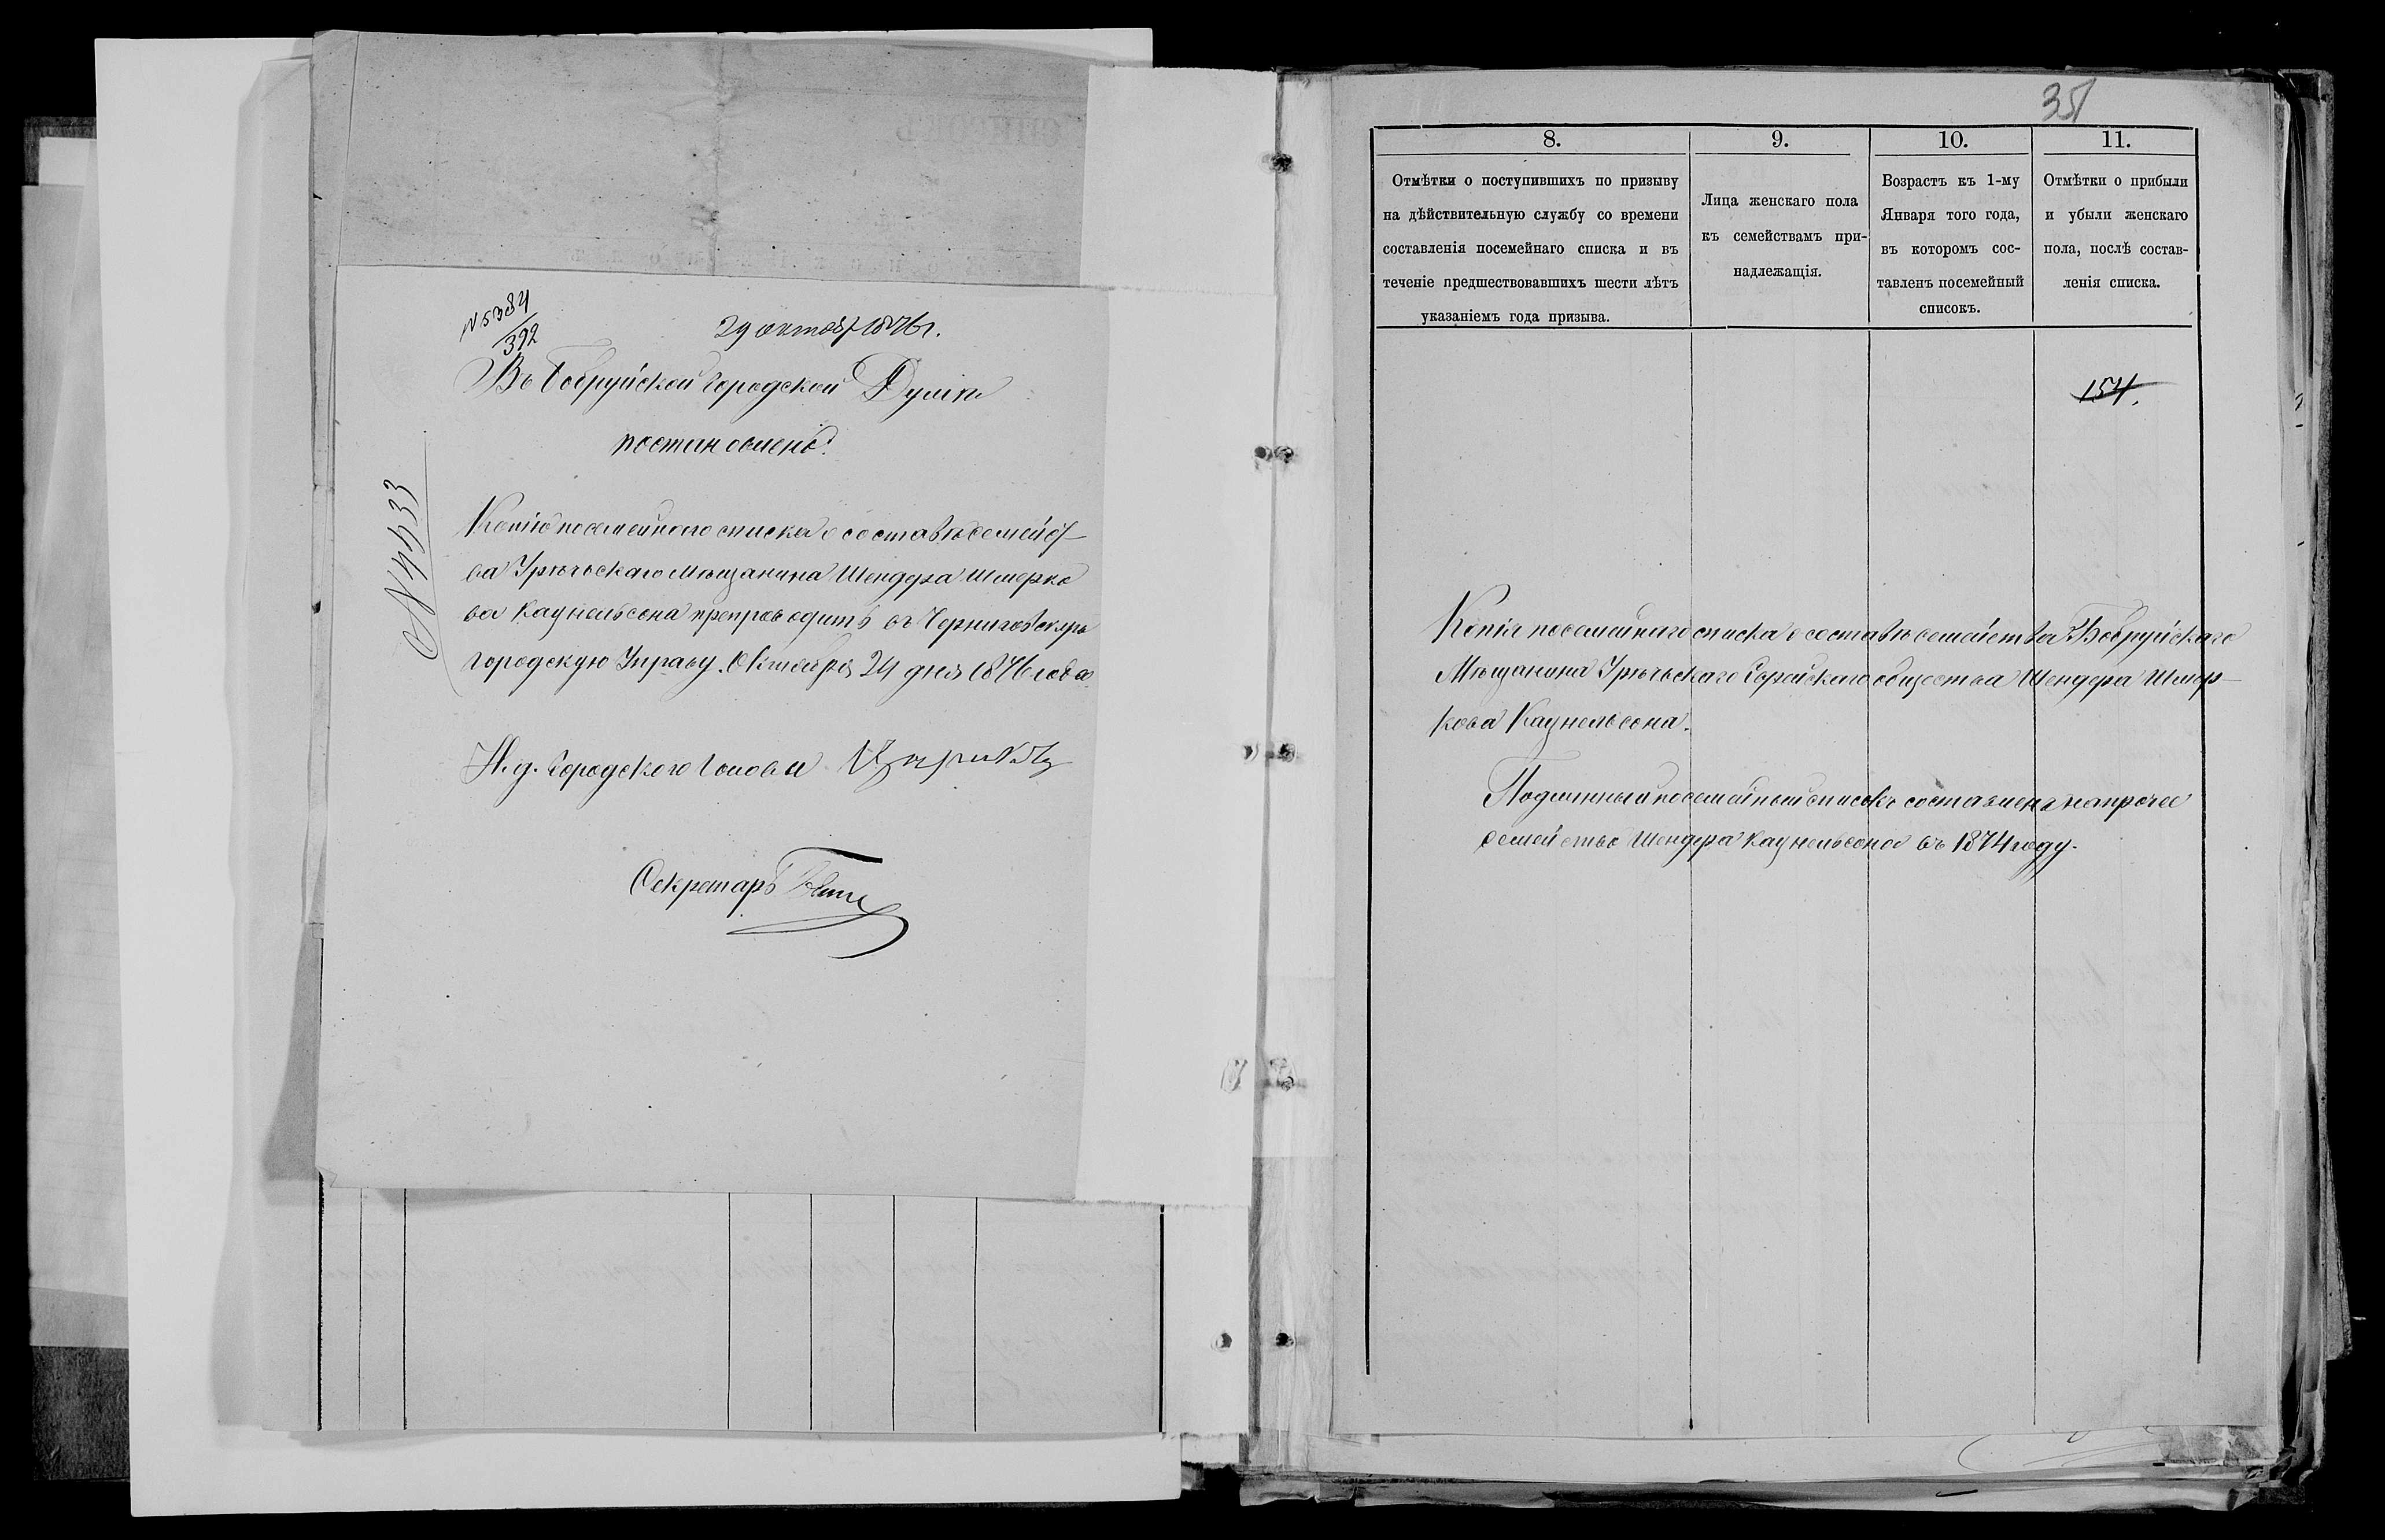 N 5384
392
29 октяб 1876 г.
Въ Бобруйской Городской Думѣ
постановлено:
N 4433
Копію посемейнаго списка о составѣ семейст
ва Урѣчьскаго Мѣщанина Шендера Шмерко
ва Кацнельсона препроводить въ Черниговскую
Городскую Управу. Октября 24 дня 1876 года
И. д. Городского Головы
Секретарь
35
8.
Отмѣтки о поступившихъ по призыву
на дѣйствительную службу со времени
составленія посемейнаго списка и въ
теченіе предшествовавшихъ шести лѣтъ
указаніемъ года призыва.
9.
Лица женскаго пола
къ семействамъ при-
надлежащія.
10.
Возрастъ къ 1-му
Января того года,
въ которомъ сос-
тавленъ посемейный
списокъ.
11.
Отмѣтки о прибыли
и убыли женскаго
пола, послѣ состав-
ленія списка.
154.
Копія посемейнаго списка о составѣ семейства Бобруйскаго
Мѣщанина Урѣчьскаго Еврейскаго общества Шендера Шмер-
кова Кацнельсона.
Подлинный посемейный списокъ составленъ на прочее
семейство Шендера Кацнельсона въ 1874 году.